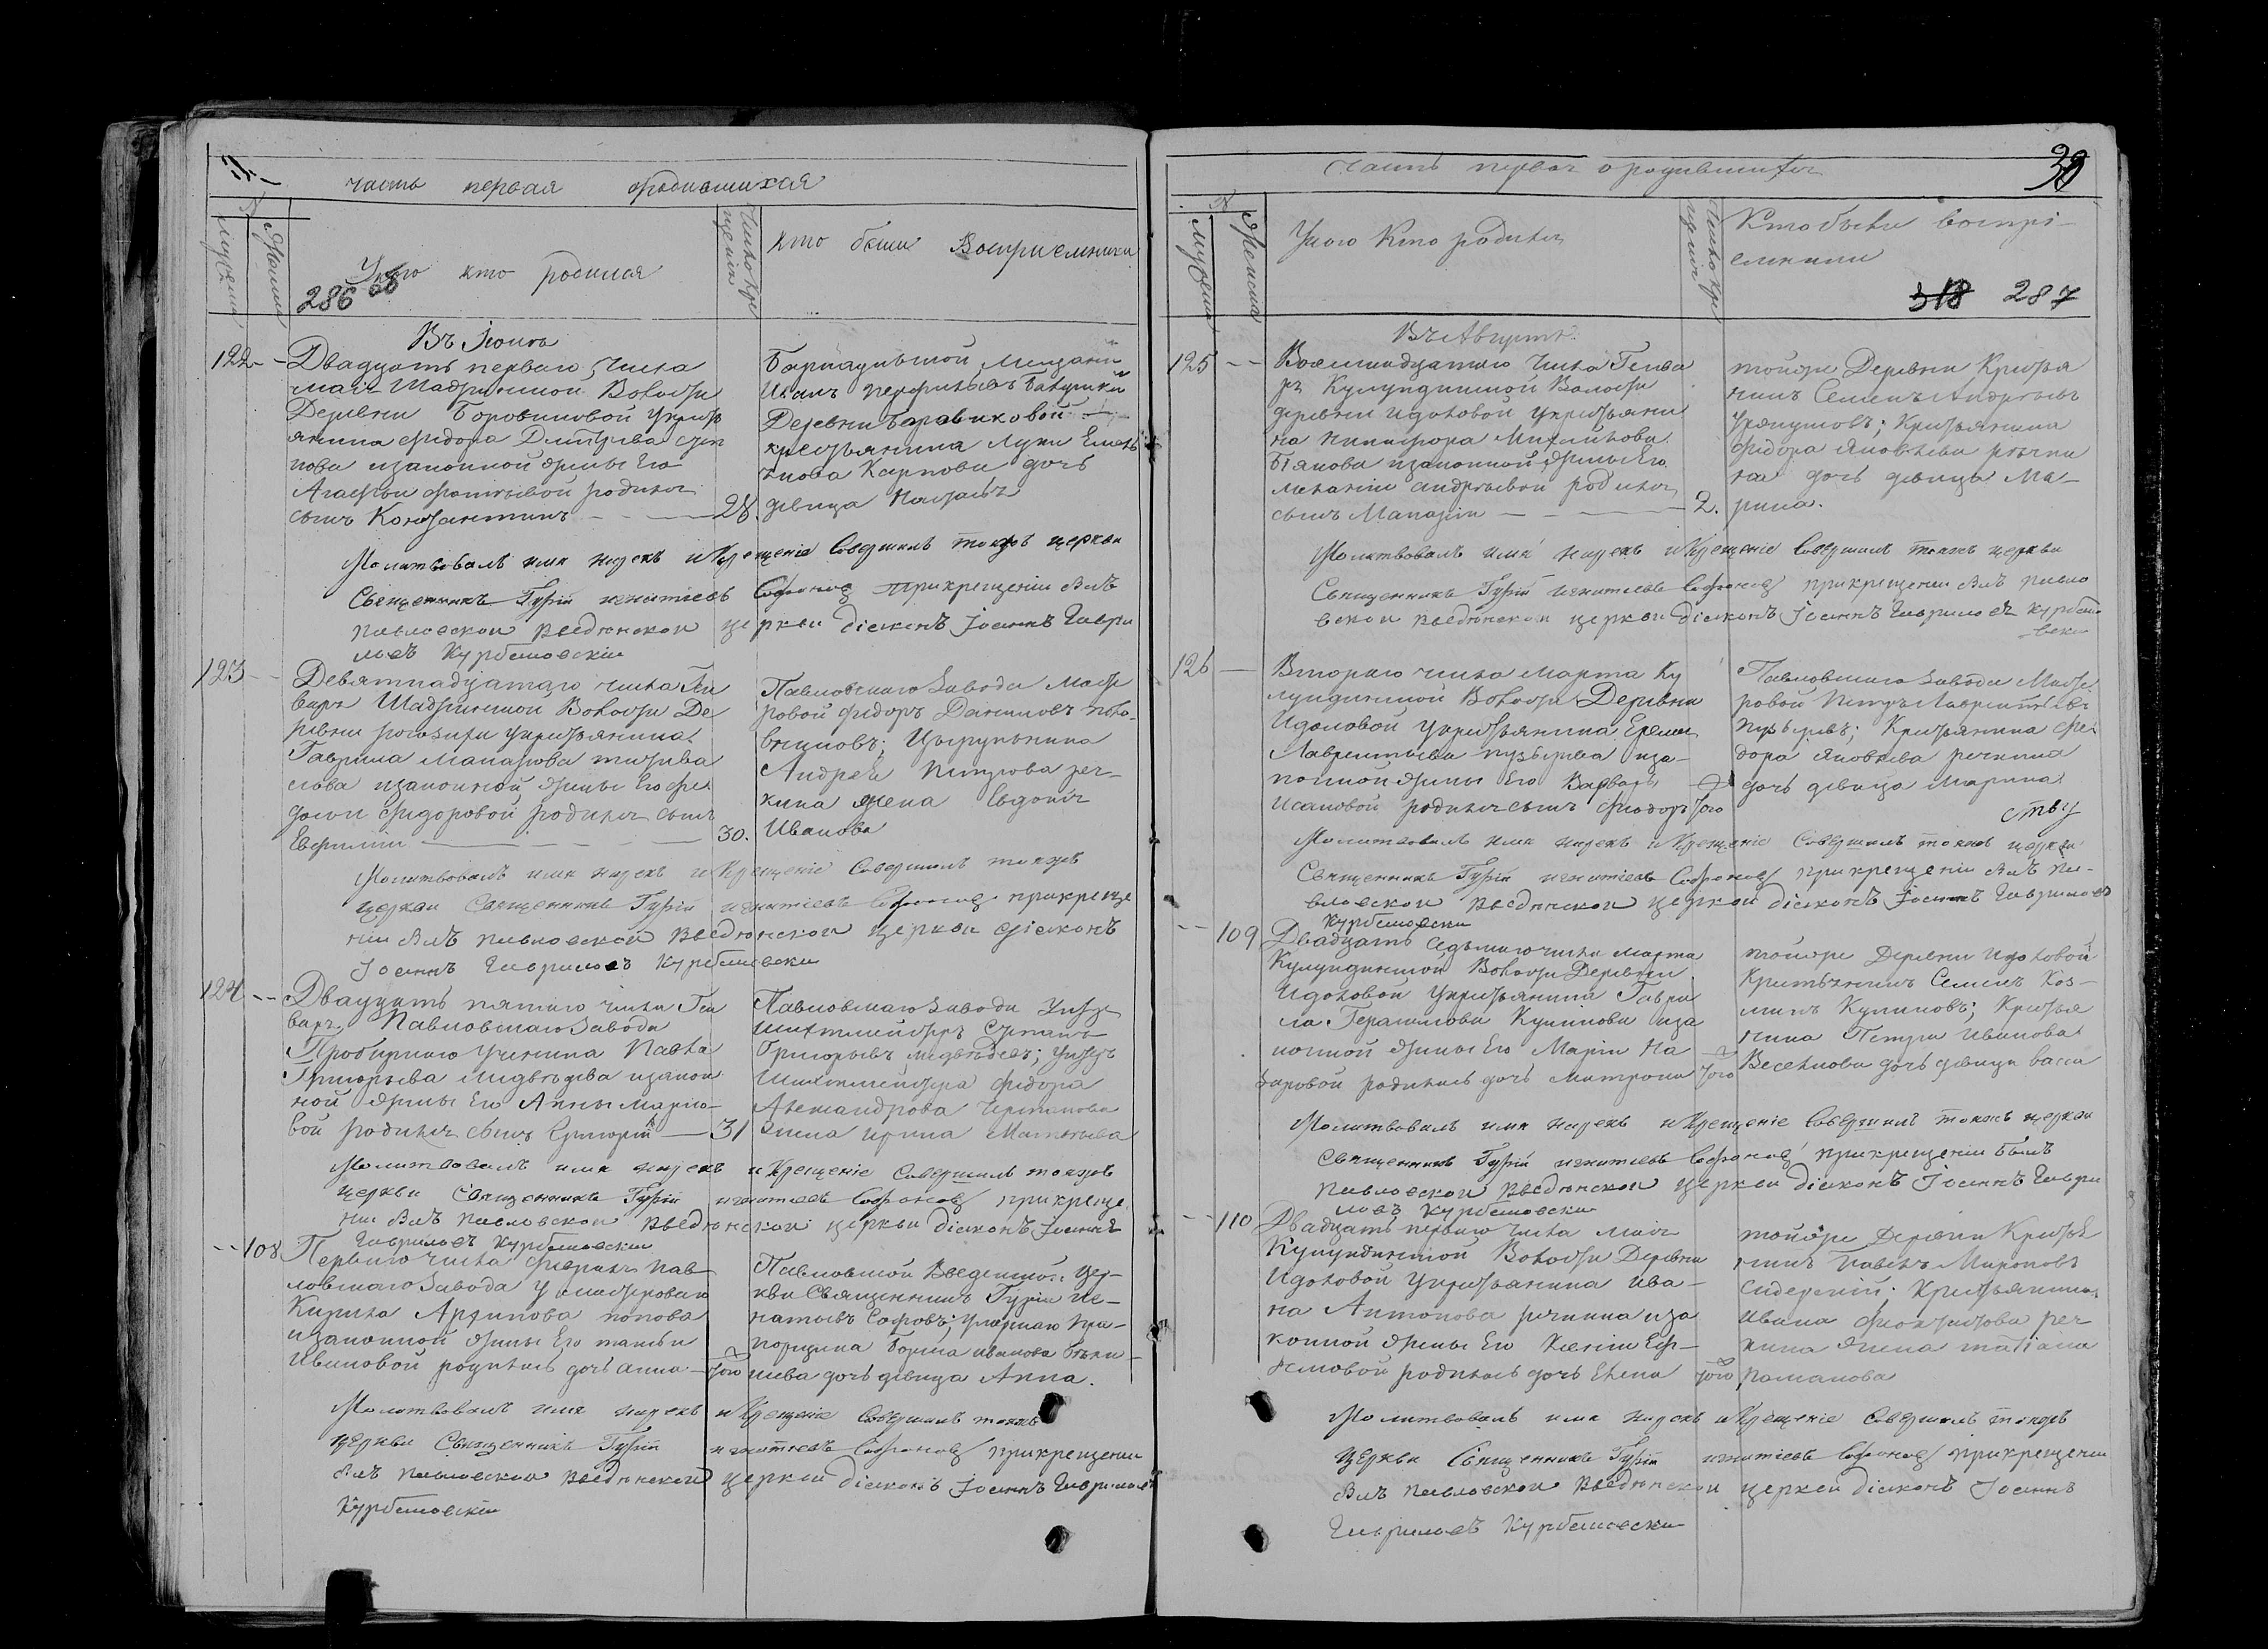 часть первая ородившихся
мужеска
женска
У кого кто родился
286
число кре
щенія
кто были Восприемники
Въ Іюлѣ
122
Двадцать перваго числа
маія Шадринской Волости
Деревни Боровиковой укресть
янина Федора Дмитріева
изаконной жены Его
Агафьи родился
сынъ Константинъ
28.
Барнаульской Мещани
Иванъ
Деревни Боравиковой
крестьянина Луки
Карпова дочь
девица
Молитвовалъ имя нарекъ и Крещеніе Совершилъ тояжъ церкви
Священникъ Гурій игнатіевъ Софоновъ прикрещеніи былъ
павловской введенской церкви діаконъ Іоаннъ Гаври
ловъ Курбановскіи
123
Девятнадцатаго числа Ген
варя Шадринской Волости Де
ревни рогозихи укрестьянина
Гаврила
изаконной жены Его Фе
досьи Федоровой родился сынъ
Евфимій
30.
Павловскаго завода Масте
ровой Федоръ Даниловъ
Андрея Петрова реч-
кина жена Евдокія
Иванова
Молитвовалъ имя нарекъ и Крещеніе Совершилъ тояжъ
церкви Священникъ Гурій игнатіевъ Софоновъ прикреще
ніи былъ павловской введенской церкви діаконъ
Іоаннъ Гавриловъ Курбановскіи
124
Двадцать пятаго числа Ген
варя Павловскаго Завода
Пробирнаго Ученика Павла
Григорьева медведева изакон
ной жены Его Анны Марко-
вой родился сынъ Григорій
31
Павловскаго Завода Унтеръ
Шихтмейстеръ Степанъ
Григорьевъ медведевъ; Унтеръ
Шихтмейстера Федора
Александрова
жена ирина Матвѣева
Молитвовалъ имя нарекъ и Крещеніе Совершилъ тояжъ
церкви Священникъ Гурій игнатіевъ Софоновъ прикреще
ніи былъ павловской введенской церкви діаконъ Іоаннъ
Гавриловъ Курбановскіи
108
Перваго числа февраля пав
ловскаго завода у мастероваго
Кирила Архипова попова
изаконной жены Его татьяны
Ивановой родилась дочь анна
того
Павловской Введенской цер-
кви Священникъ Гурій иг-
натьевъ Софоновъ; умершаго пра-
порщика Бориса иванова
дочь девица Анна.
Молитвовалъ имя нарекъ и Крещеніе Совершилъ тояжъ
церкви Священникъ Гурій игнатіевъ Софоновъ прикрещеніи
былъ павловской введенской церкви діаконъ Іоаннъ Гавриловъ
Курбановскіи
часть первая ородившихся
39
мужеска
женска
Укого Кто родился
число кре
щенія
Кто были воспрі-
емники
318 287
Въ Августѣ.
125
Восемнадцатаго числа Генва
ря Кулундинской Волости
деревни идоловой укрестьяни
на никифора Михайлова
Бѣлкова изаконной жены Его
меланіи андреевой родился
сынъ
2.
тойже Деревни Крестья
нинъ Семенъ Андреевъ
Крестьянина
Федора Яковлева речки
на дочь девица Ма-
рина.
Молитвовалъ имя нарекъ и Крещеніе Совершилъ тояжъ церкви
Священникъ Гурій игнатіевъ Софоновъ прикрещеніи былъ павло
вской введенской церкви діаконъ Іоаннъ Гавриловъ Курбано
вски
126
Втораго числа Марта Ку
лундинской Волости Деревни
Идоловой укрестьянина Еремея
Лаврентьева иза-
конной жены Его Варвары
Исаковой родился сынъ Феодоръ
того
Павловскаго завода Масте
ровой Петръ Лаврентьевъ
Крестьянина Фе
дора Яковлева речкина
дочь девица Марина
Молитвовалъ имя нарекъ и Крещеніе Совершилъ тояжъ церкви
Священникъ Гурій игнатіевъ Софоновъ прикрещеніи былъ па-
вловской введенской церкви діаконъ Іоаннъ Гавриловъ
Курбановски
109
Двадцать седьмаго числа марта
Кулундинской Волости Деревни
Идоловой укрестьянина Гаври
ла Герасимова Куликова иза
конной жены Его Маріи На
заровой родилась дочь матрона
того
тойже Деревни Идоловой
Крестьянинъ Семенъ Коз-
минъ Куликовъ; Крестья
нина Петра Иванова
Веселкова дочь девица
Молитвовалъ имя нарекъ и Крещеніе Совершилъ тояжъ церкви
Священникъ Гурій игнатіевъ Софоновъ прикрещеніи былъ
павловской введенской церкви діаконъ Іоаннъ Гаври
ловъ Курбановски
110
Двадцать перваго числа маія
Кулундинской Волости Деревни
Идоловой укрестьянина ива-
на Антонова речкина иза
конной жены Его Ксеніи Еф-
ремовой родилась дочь Елена
того
тойже Деревни Крестья
нинъ Павелъ Мироновъ
Сидерскій; Крестьянина
Ивана реч
кина жена татіана
романова
Молитвовалъ имя нарекъ и Крещеніе Совершилъ тояжъ
церкви Священникъ Гурій игнатіевъ Софоновъ прикрещеніи
былъ павловской введенской церкви діаконъ Іоаннъ
Гавриловъ Курбановски